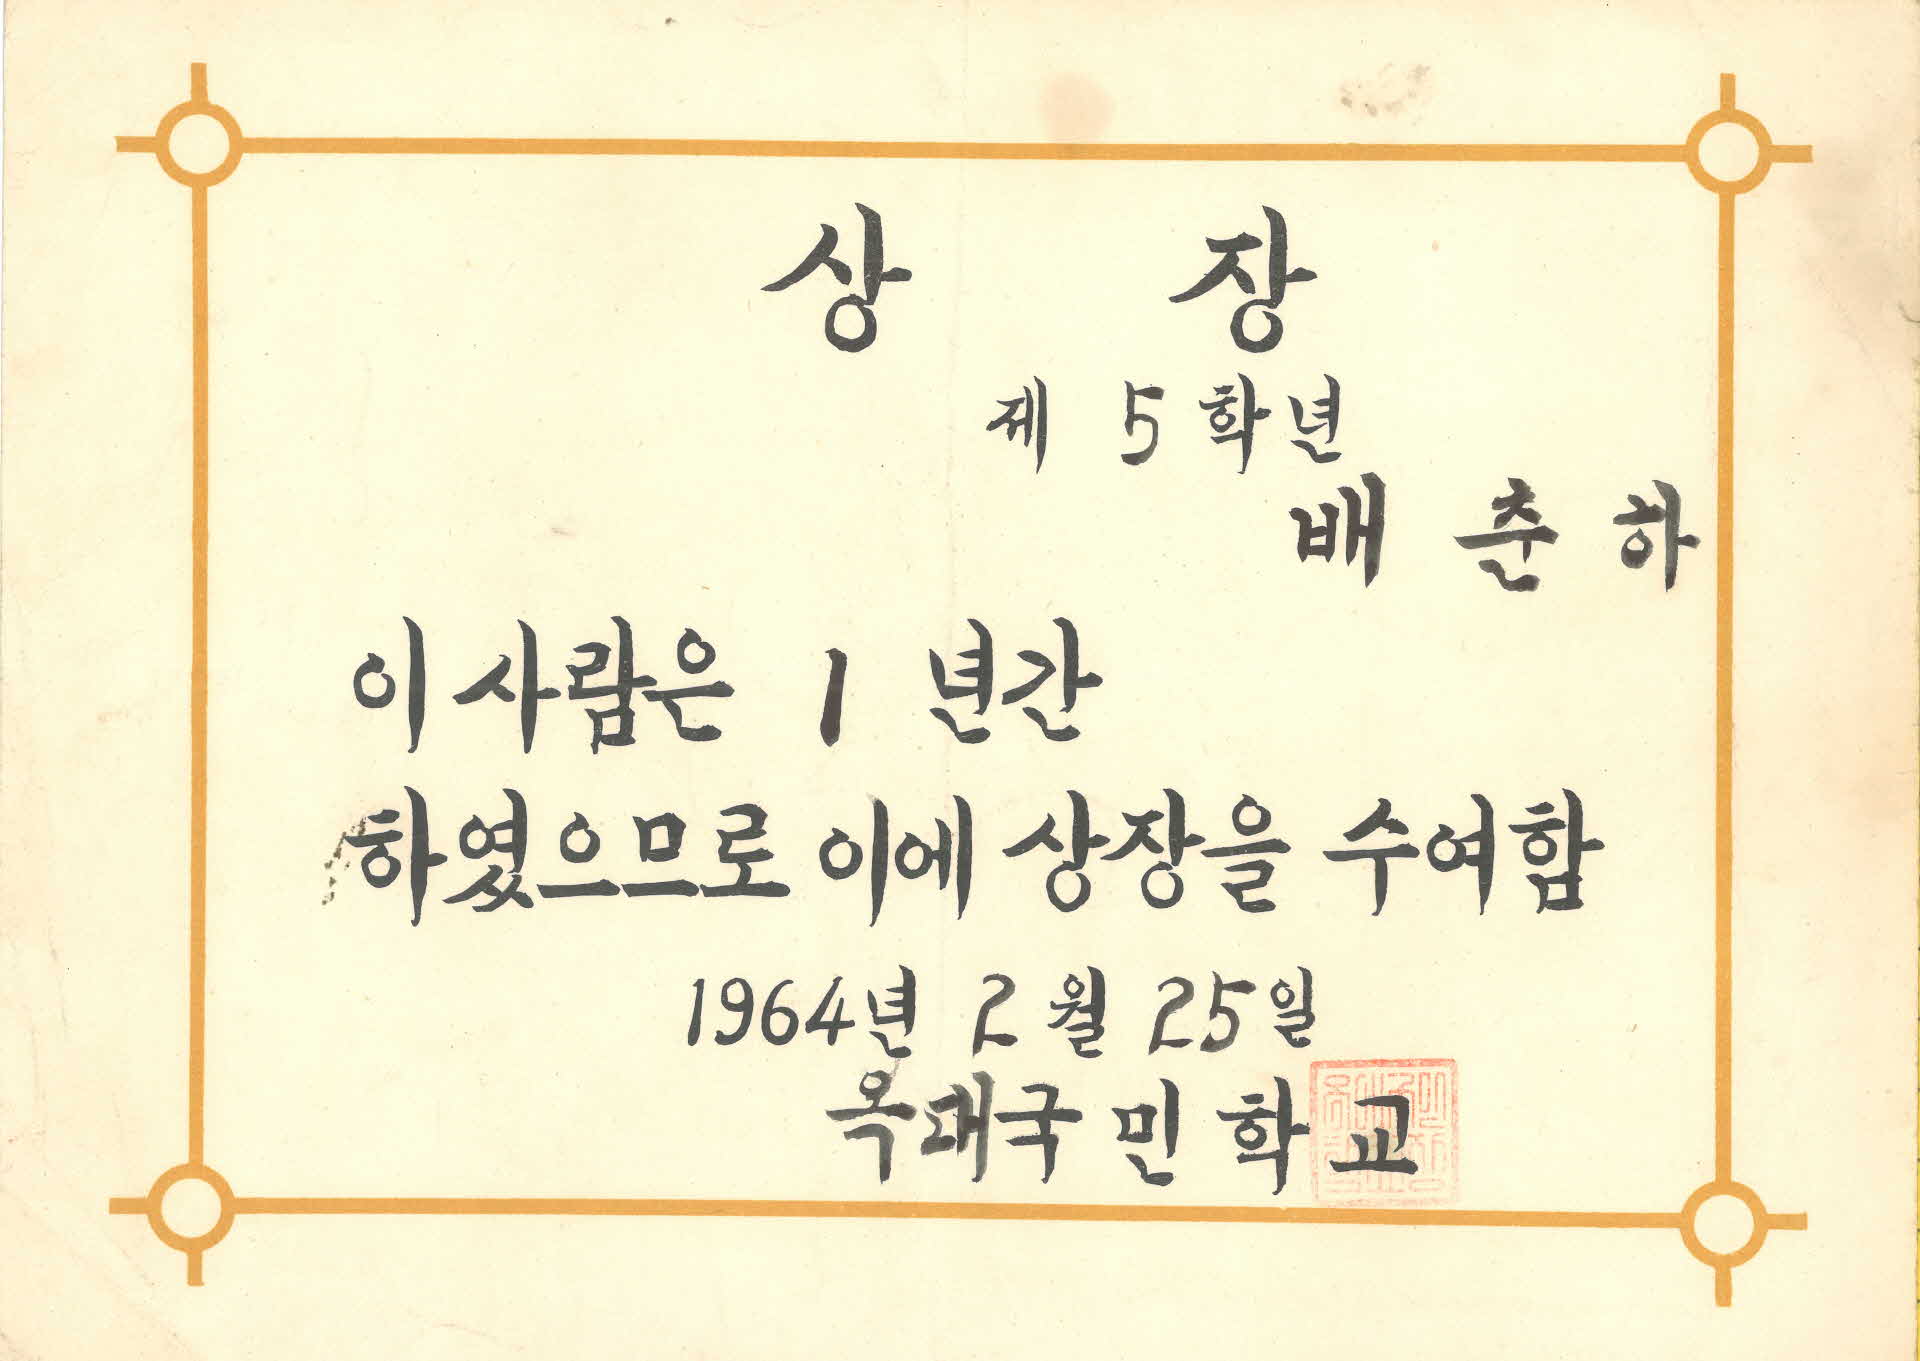 상 장
제 5 학년
배 춘 하
이 사람은 1 년간
하였으므로 이에 상장을 수여함
1964년 2 월 25일
옥대국 민 학 교